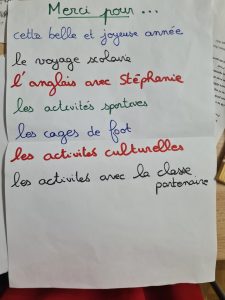 Merci pour ...
cette belle et joyeuse année
le voyage scolaire
l'anglais avec Stéphanie
les activités sportives
les cages de foot
les activités culturelles
les activités avec la classe
partenaire